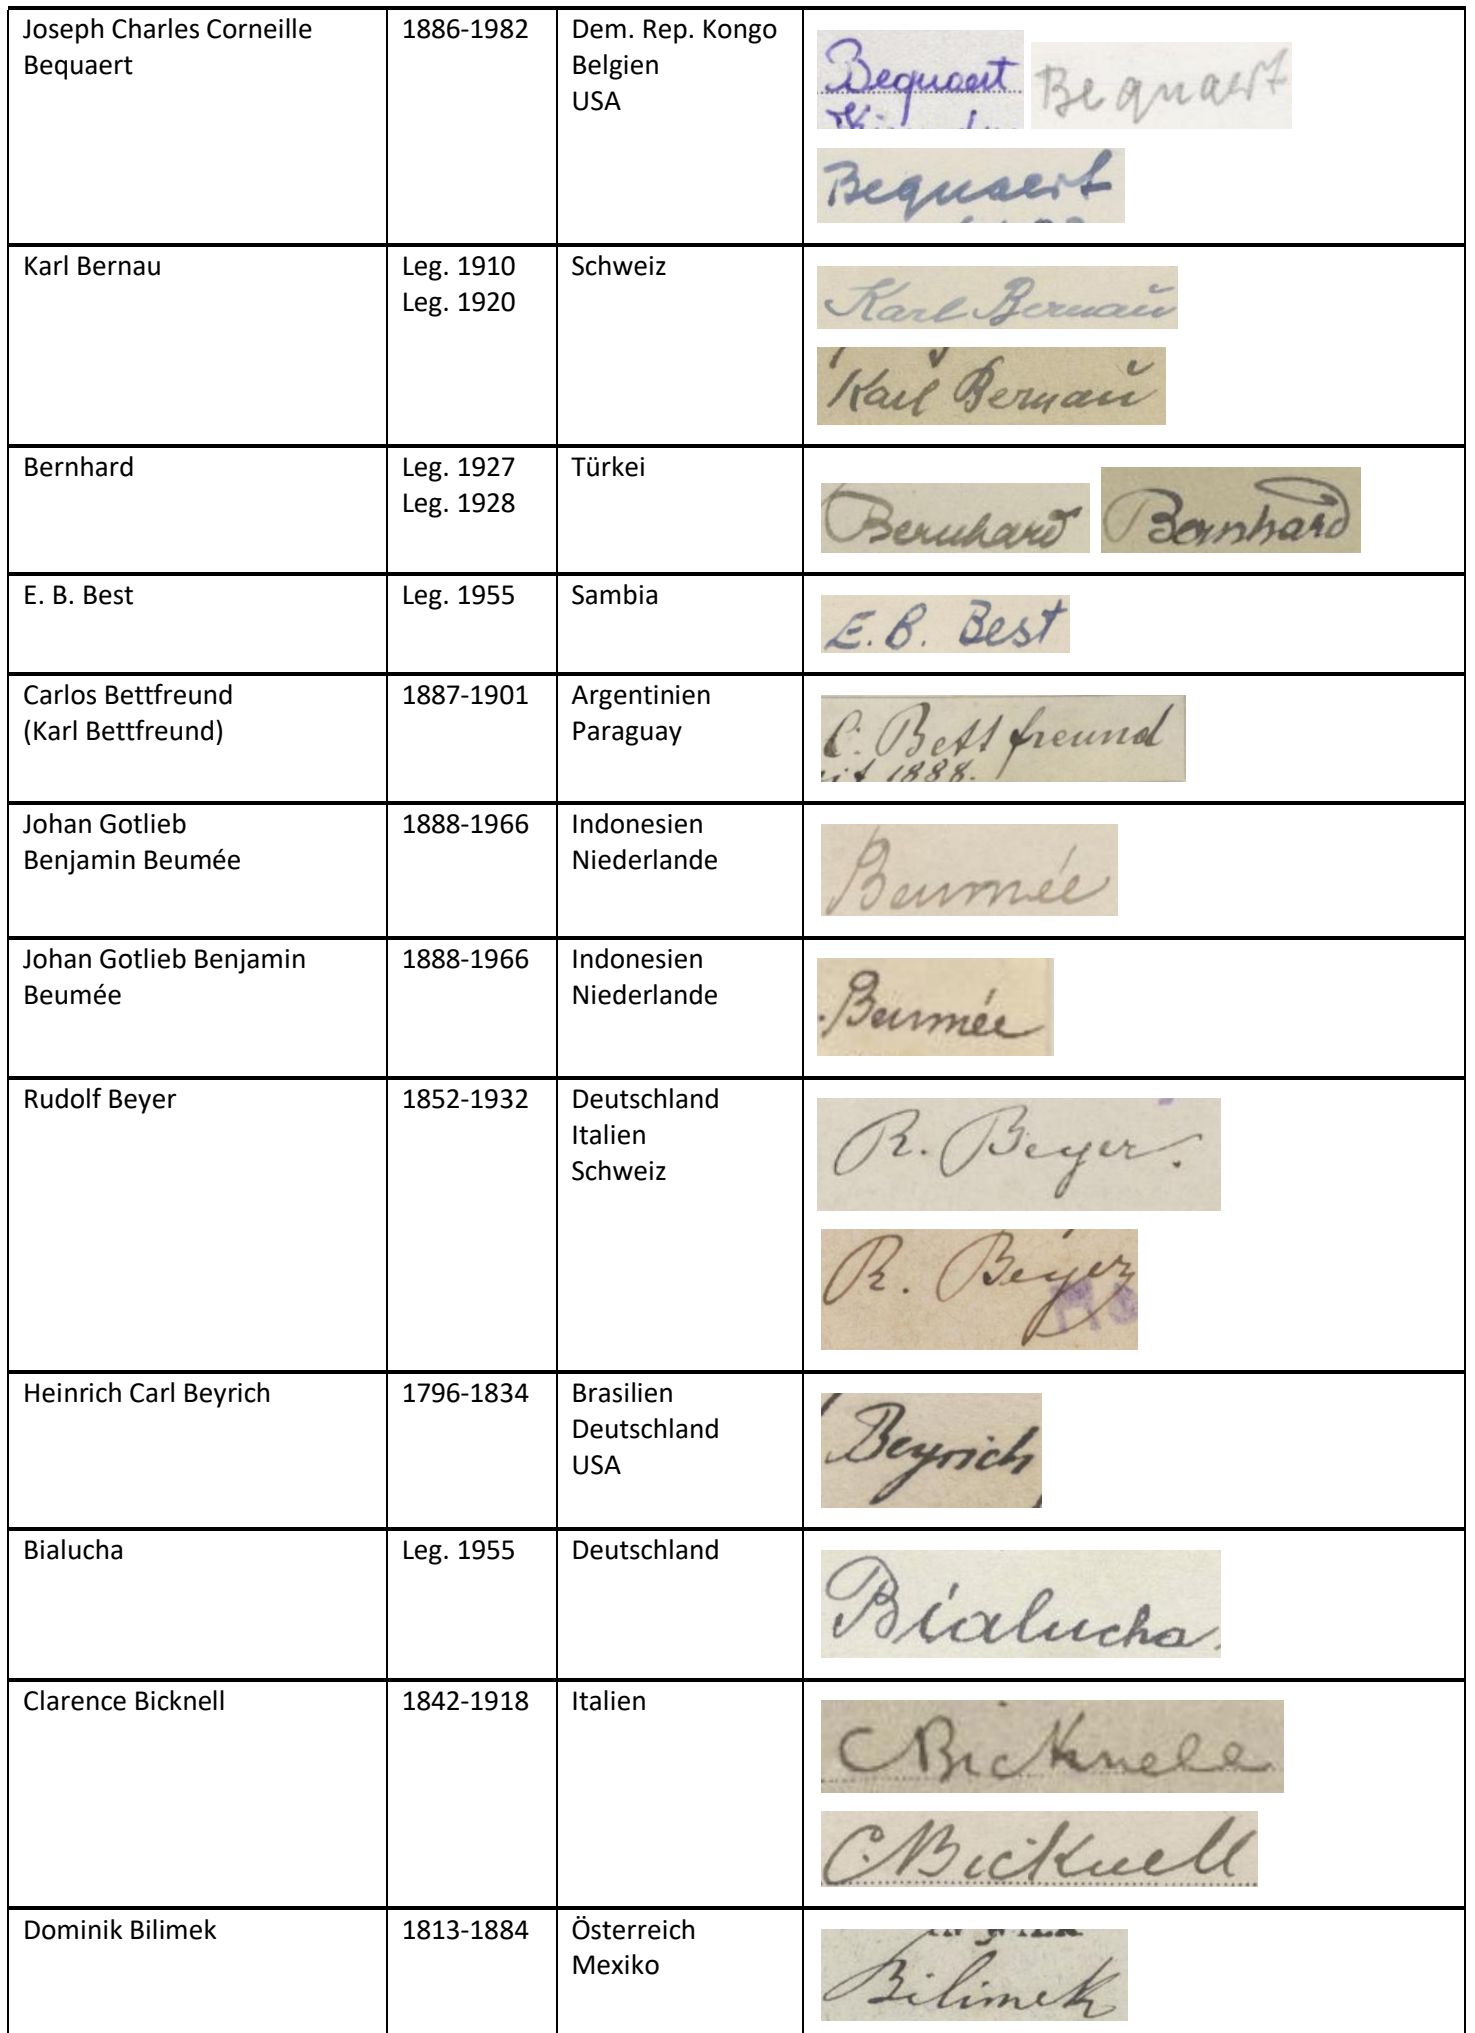 Joseph Charles Corneille
Bequaert
1886-1982
Dem. Rep. Kongo
Belgien
USA
Bequaert
Bequaert
Bequaert
Karl Bernau
Leg. 1910
Leg. 1920
Schweiz
Karl Bernaŭ
Karl Bernaŭ
Bernhard
Leg. 1927
Leg. 1928
Türkei
Bernhard
Bernhard
E. B. Best
Leg. 1955
Sambia
E. B. Best
Carlos Bettfreund
(Karl Bettfreund)
1887-1901
Argentinien
Paraguay
C. Bettfreund
1888.
Johan Gotlieb
Benjamin Beumée
1888-1966
Indonesien
Niederlande
Beumée
Johan Gotlieb Benjamin
Beumée
1888-1966
Indonesien
Niederlande
Beumée
Rudolf Beyer
1852-1932
Deutschland
Italien
Schweiz
R. Beyer.
R. Beyer
Heinrich Carl Beyrich
1796-1834
Brasilien
Deutschland
USA
Beyrich
Bialucha
Leg. 1955
Deutschland
Bialucha
Clarence Bicknell
1842-1918
Italien
C Bicknell
C. Bicknell
Dominik Bilimek
1813-1884
Österreich
Mexiko
Bilimek